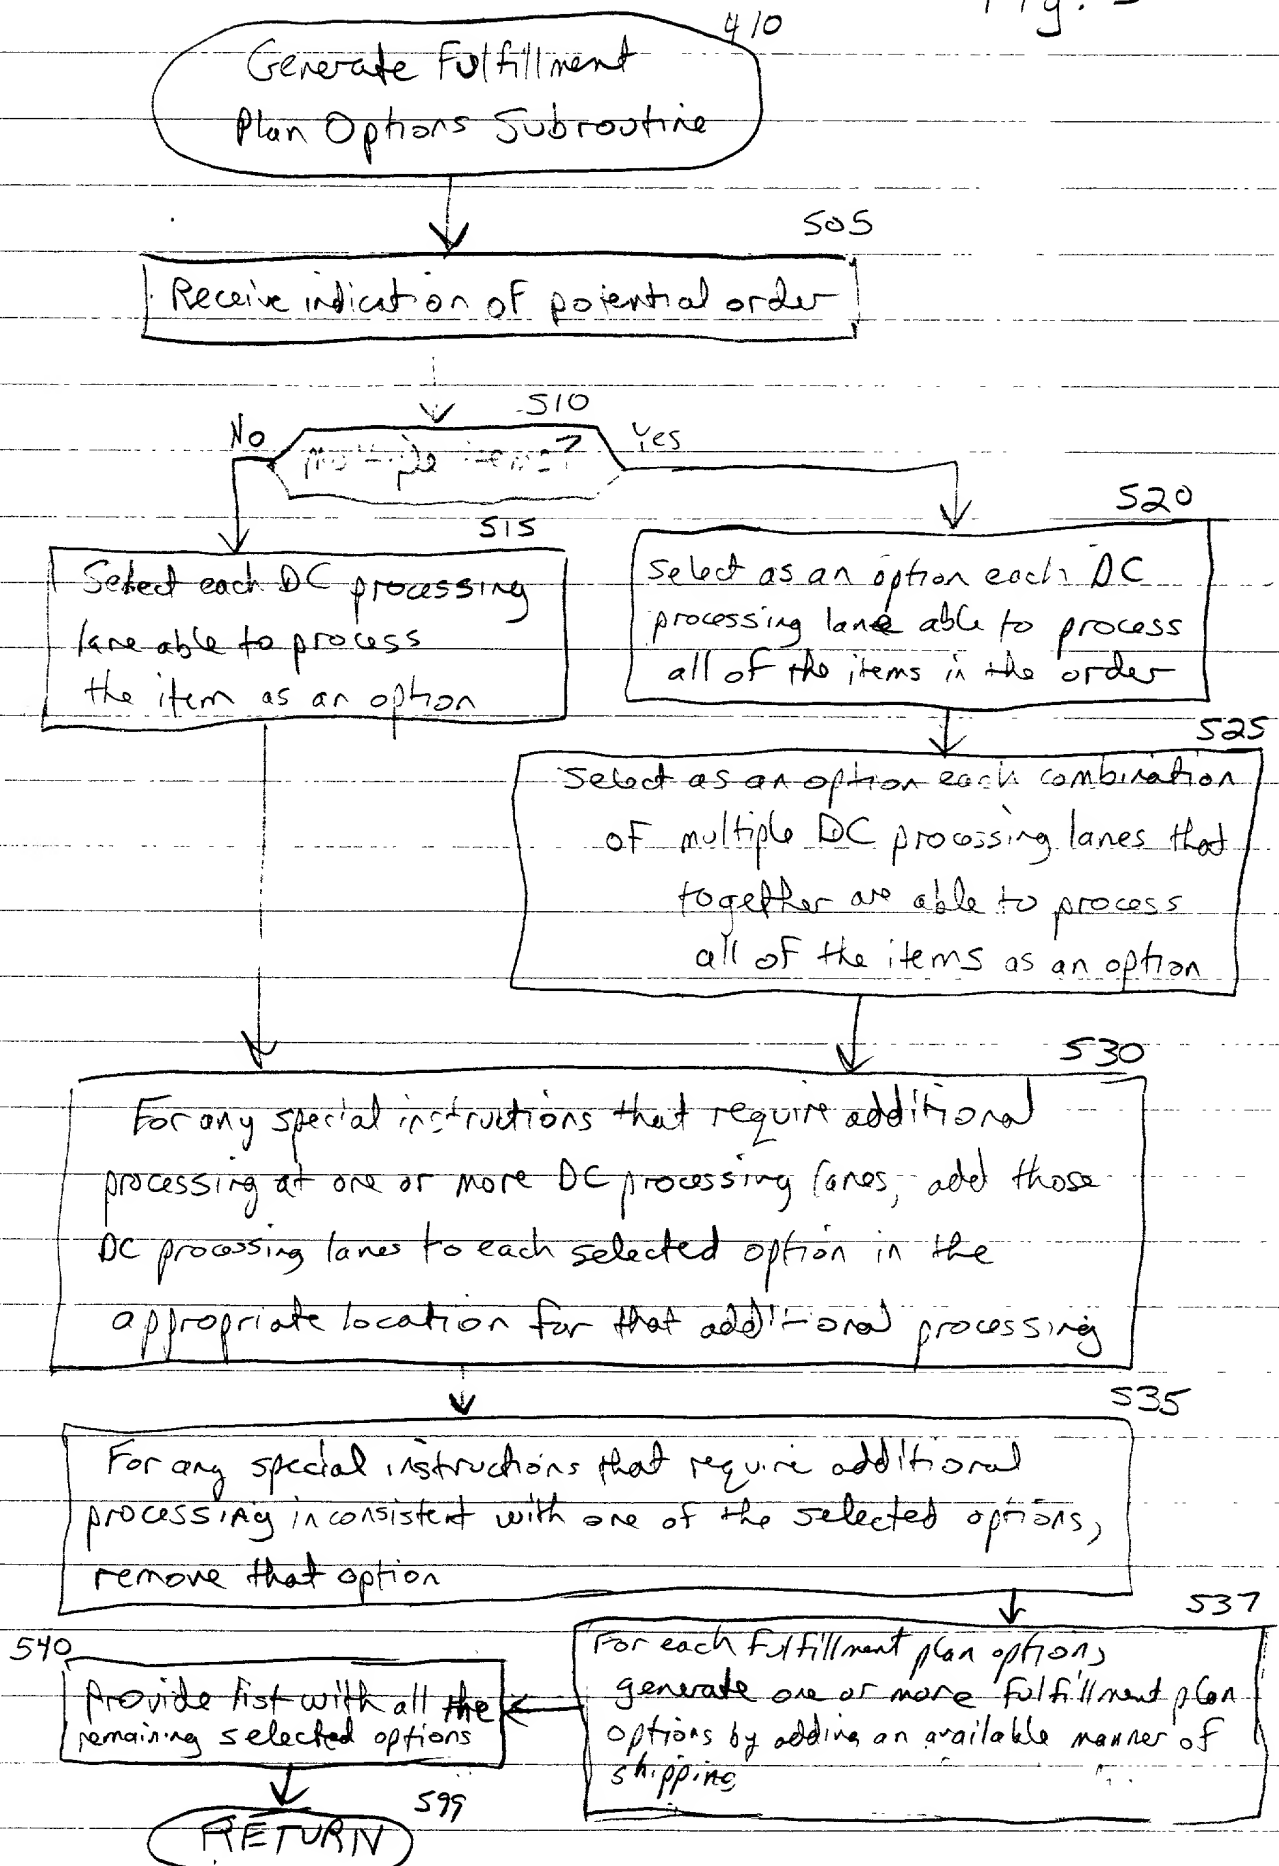 Fig. 5
410
Generate Fulfillment
Plan Options Subroutine
505
Receive indication of potential order
510
No
Multiple items?
Yes
515
Select each DC processing
lane able to process
the item as an option
520
Select as an option each DC
processing lane able to process
all of the items in the order
525
Select as an option each combination
of multiple DC processing lanes that
together are able to process
all of the items as an option
530
For any special instructions that require additional
processing at one or more DC processing lanes, add those
DC processing lanes to each selected option in the
appropriate location for that additional processing
535
For any special instructions that require additional
processing inconsistent with one of the selected options,
remove that option
537
For each fulfillment plan options,
generate one or more fulfillment plan
options by adding an available manner of
shipping
540
Provide list with all the
remaining selected options
599
RETURN